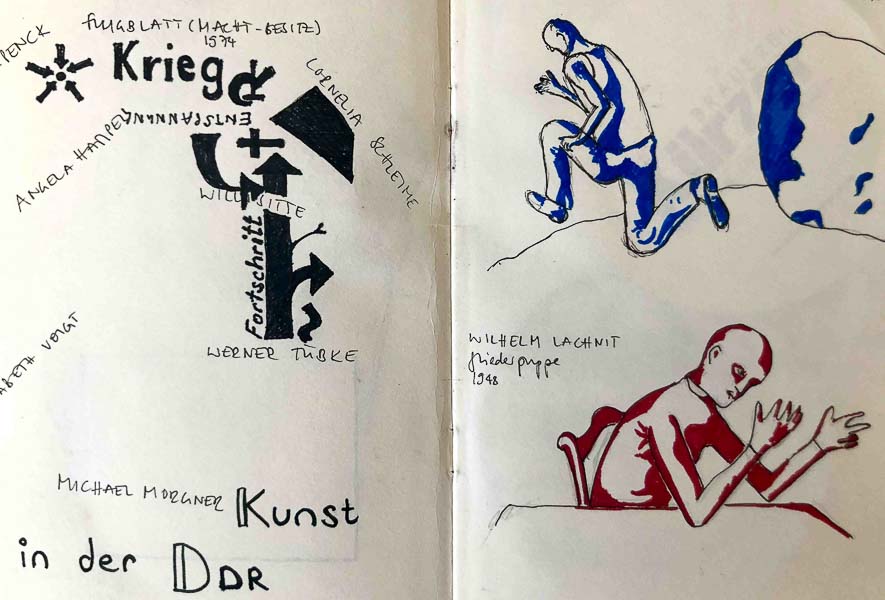 PENCK
flugblatt (MACHT-BESITZ)
1974
Krieg
CORNELIA SCHLEIME
ANGELA HAMPEL
WILLI SITTE
Fortschritt
WERNER TÜBKE
VOIGT
MICHAEL MORGNER
Kunst
in der DDR
WILHELM LACHNIT
Gliederpuppe
1948